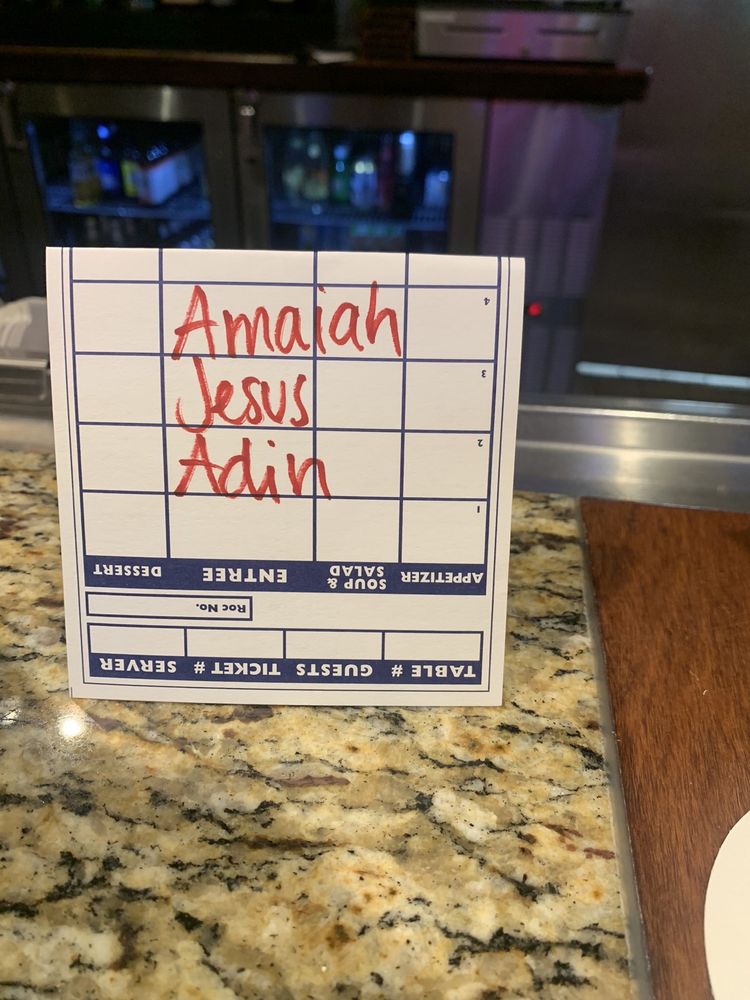 Amaiah
Jesus
Adin
4
3
2
1
APPETIZER SOUP & SALAD ENTREE DESSERT
Roc No.
TABLE # GUESTS TICKET # SERVER